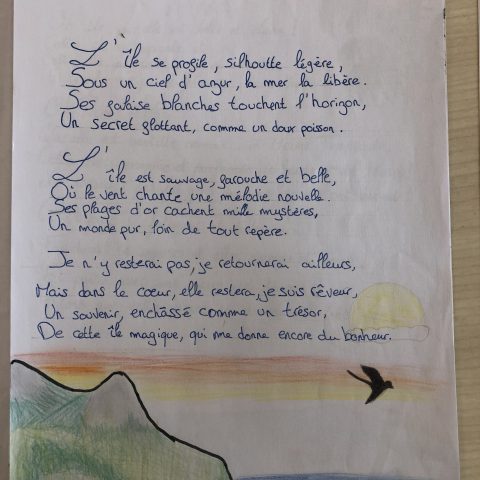 L'île se profile, silhoutte légère,
Sous un ciel d'azur, la mer la libère.
Ses falaise blanches touchent l'horizon,
Un secret flottant, comme un doux poisson.
L'île est sauvage, farouche et belle,
Où le vent chante une mélodie nouvelle.
Ses plages d'or cachent mille mystères,
Un monde pur, loin de tout repère.
Je n'y resterai pas, je retournerai ailleurs,
Mais dans le coeur, elle restera, je suis rêveur,
Un souvenir, enchâssé comme un trésor,
De cette île magique, qui me donne encore du bonheur.